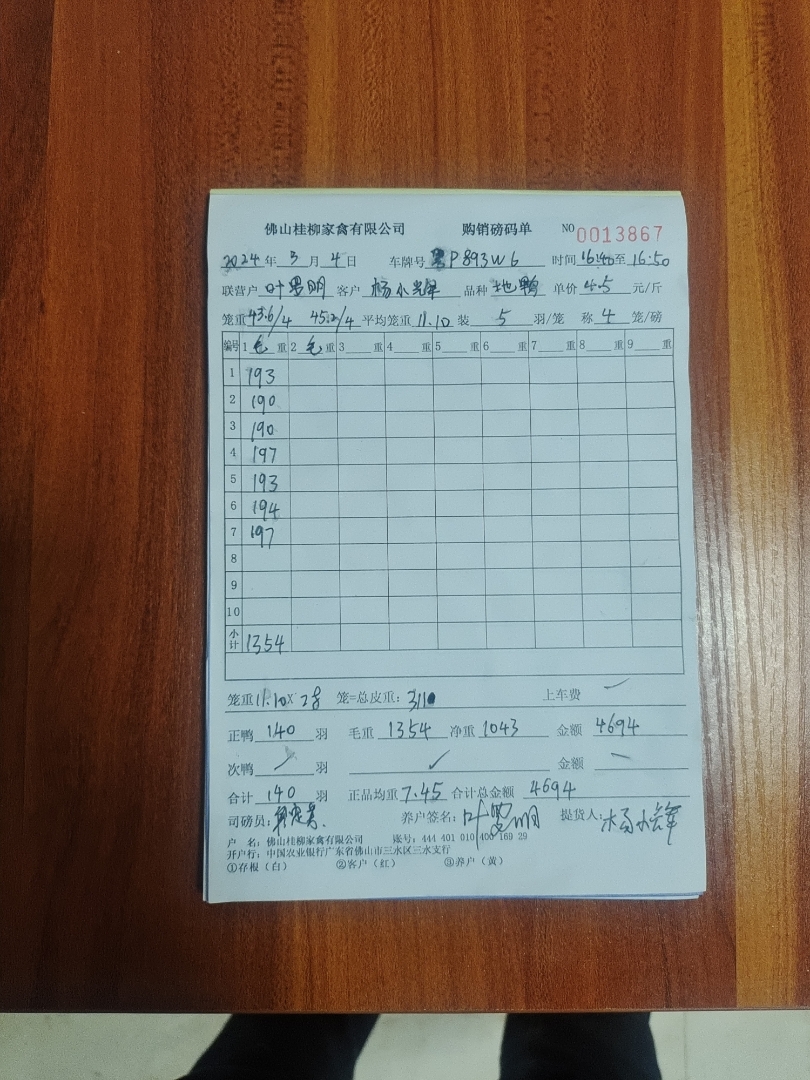 佛山桂柳家禽有限公司 购销磅码单 NO 0013867
2024年 3月 4日 车牌号 P893W6 时间 16:40至16:50
联营户 叶 明 客户 杨小 品种 地鸭 单价 4.5 元/斤
笼重 43.6/4 45.2/4 平均笼重 11.10 装 5 羽/笼 称 4 笼/磅
编号 1 毛 重 2 毛 重 3 重 4 重 5 重 6 重 7 重 8 重 9 重
1 193
2 190
3 190
4 197
5 193
6 194
7 197
8
9
10
小计 1354
笼重 11.10 X 28 笼=总皮重: 311 上车费
正鸭 140 羽 毛重 1354 净重 1043 金额 4694
次鸭 羽 ✓ 金额
合计 140 羽 正品均重 7.45 合计总金额 4694
司磅员: 养户签名: 叶 明 提货人: 杨小
户 名: 佛山桂柳家禽有限公司 账号: 444 401 010 400 169 29
开户行: 中国农业银行广东省佛山市三水区三水支行
①存根（白） ②客户（红） ③养户（黄）